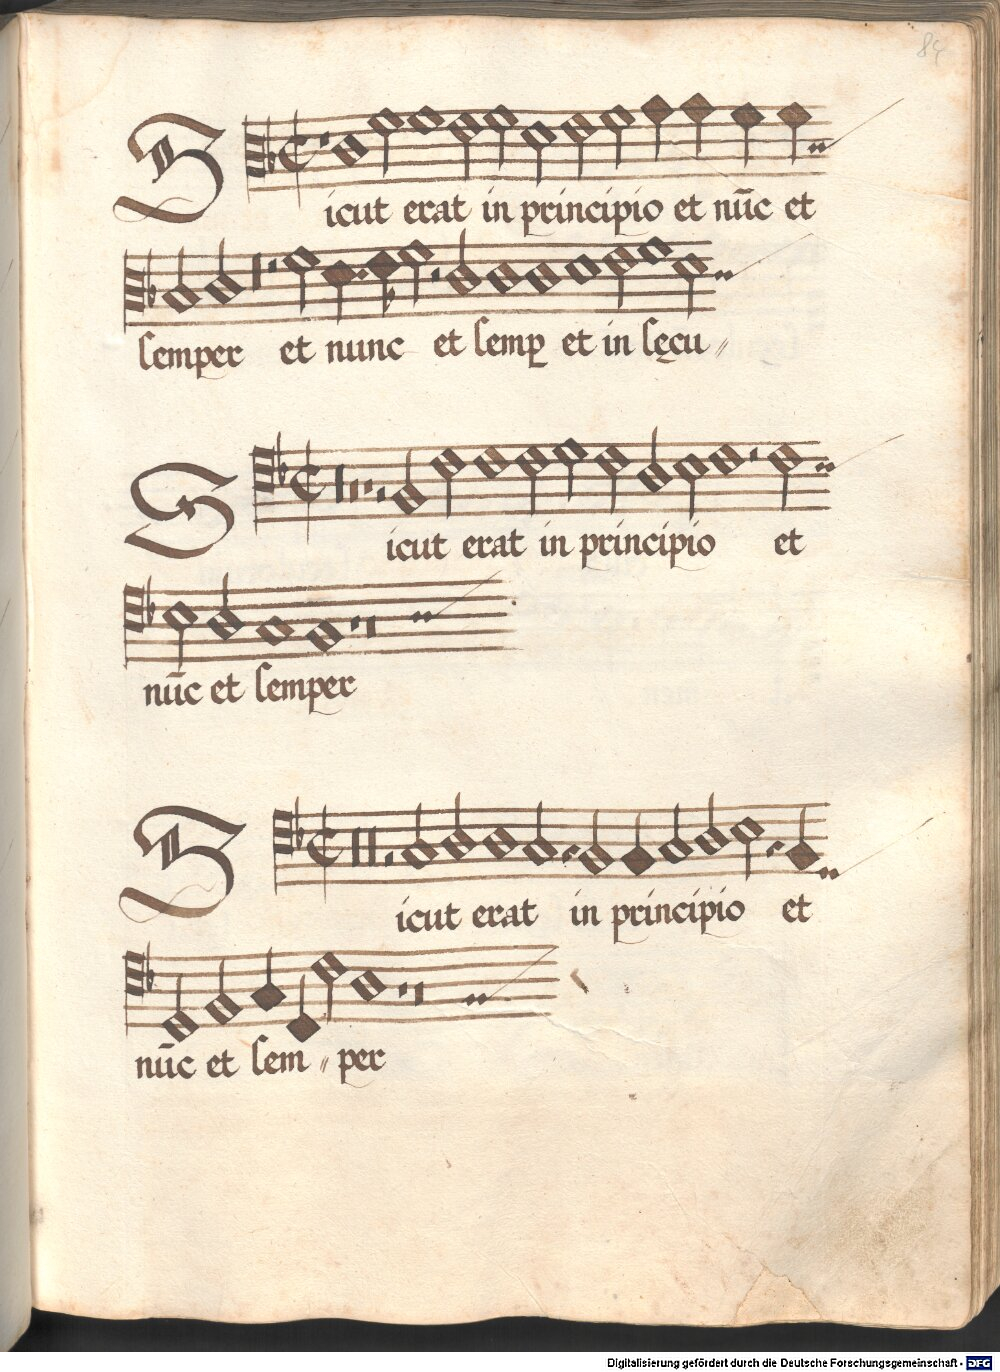 84
Sicut erat in principio et nūc et
semper et nunc et semꝑ et in sęcu〃
Sicut erat in principio et
nūc et semper
Sicut erat in principio et
nūc et sem〃per
Digitalisierung gefördert durch die Deutsche Forschungsgemeinschaft - DFG